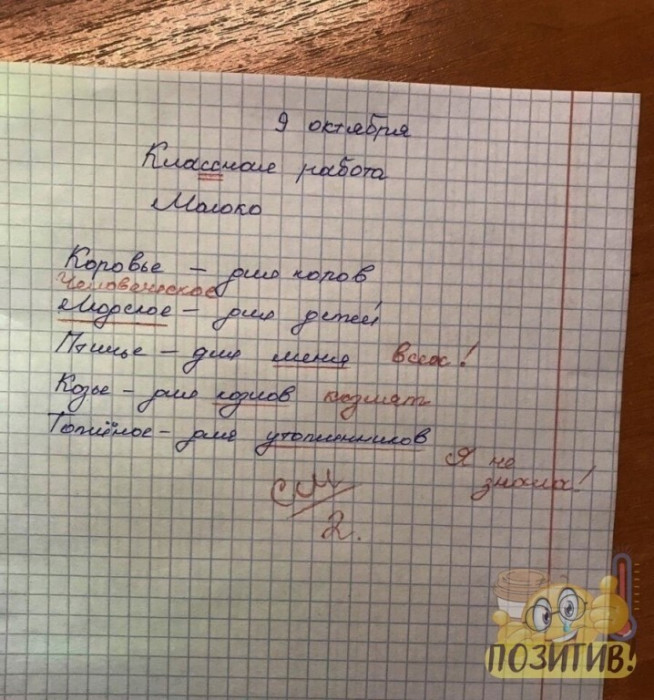 9 октября
Классная работа
Молоко
Коровье – для коров
Человеческое
Людское – для детей
Птичье – для меня всех!
Козье – для козлов козлят
Топлёное – для утопленников
Я не
знала!
См
2.
ПОЗИТИВ!